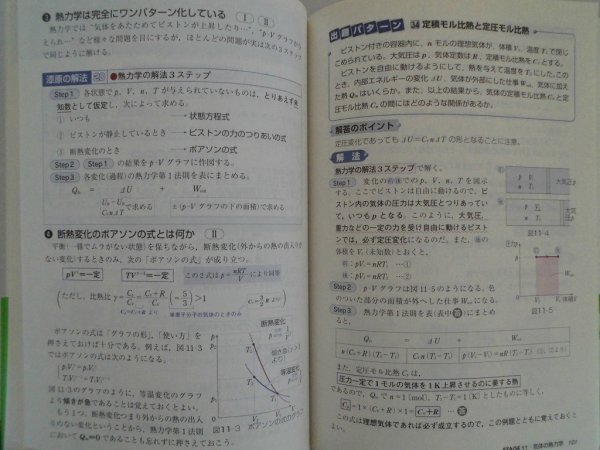 ❸ 熱力学は完全にワンパターン化している Ⅰ Ⅱ
熱力学では“気体をあたためてピストンが上昇したり…”，“p-Vグラフが与
えられ…”など様々な問題を目にするが，ほとんどの問題が実は次の3ステップ
で同じように解ける。
漆原の解法 28 ●熱力学の解法3ステップ
Step1 各状態で p, V, n, T が与えられていないものは，とりあえず未
知数として仮定し，次によって求める。
① いつも → 状態方程式
② ピストンが静止しているとき → ピストンの力のつりあいの式
③ 断熱変化のとき → ポアソンの式
Step2 Step1 の結果を p-V グラフに作図する。
Step3 各変化(過程)の熱力学第1法則を表にまとめる。
Qin = ΔU + Wout
U後−U前 で求める
CvnΔT
±(p-Vグラフの下の面積)で求める
❹ 断熱変化のポアソンの式とは何か Ⅱ
平衡(一様でムラがない状態)を保ちながら，断熱変化(外からの熱の出入り
がない変化)するときのみ，次の「ポアソンの式」が成り立つ。
pV^γ＝一定 TV^(γ−1)＝一定 この2式は p＝nRT/V により同等
(ただし，比熱比 γ＝Cp/Cv＝(Cv＋R)/Cv(＝5/3)＞1
Cv＝3/2 R より
単原子分子の気体のときのみ
ポアソンの式は「グラフの形」，「使い方」を
押さえておけば十分である。例えば，図11-3
ではポアソンの式は次のようになる。
図11-3のグラフのように，等温変化のグラフ
より傾きが急であることは覚えておくとよい。
もう1つ，断熱変化つまり外からの熱の出入
りのない変化ということから，熱力学第1法則
において Qin＝0 であることも忘れずに押さえておこう。
断熱変化
等温変化
図11-3 ポアソンの式のグラフ
出題パターン 34 定積モル比熱と定圧モル比熱
ピストン付きの容器内に，n モルの理想気体が，体積 V₁，温度 T₁で閉じ
こめられている。大気圧は p，気体定数は R，定積モル比熱を Cv とする。
ピストンを自由に動けるようにして，熱を与えて温度を T₂にした。この
とき，内部エネルギーの変化 ΔU，気体が外部にした仕事 Wout，気体に加え
た熱 Qin はいくらか。また，以上の結果から，気体の定積モル比熱 Cv と定
圧モル比熱 Cp の間にはどのような関係があるか。
解答のポイント
定圧変化であっても ΔU＝CvnΔT の形となることに注意。
解 法
熱力学の解法3ステップで解く。
Step1 変化の前後での p, V, n, T を図示
する。ここでピストンは自由に動けるので，ピス
トン内の気体の圧力は大気圧とつりあってい
て，いつも p となる。このように，大気圧，
重力などの一定の力を受け自由に動けるピスト
ンでは，必ず定圧変化になるのだ。また，後の
体積を V₂ (未知数)とおくと，
前：pV₁＝nRT₁ …①
後：pV₂＝nRT₂ …②
大気圧 p
図11-4
Step2 p-Vグラフは図11-5のようになる。色
のついた部分の面積が外へした仕事 Wout になる。
Step3 熱力学第1法則を表(表中 答)にまとめ
ると，
圧力
Wout
V₁ V₂ 体積V
図11-5
Qin = ΔU + Wout
n(Cv＋R)(T₂−T₁) Cvn(T₂−T₁) p(V₂−V₁)＝nR(T₂−T₁)(①②より)
また，定圧モル比熱 Cp は，
圧力一定で1モルの気体を1K上昇させるのに要する熱
であるので，Qin で n＝1(mol)，T₂−T₁＝1(K)としたものに等しく，
Cp＝1×(Cv＋R)×1＝Cv＋R …答
この式は理想気体であれば必ず成立するので，この例題とともに覚えておく
とよい。
STAGE 11 気体の熱力学